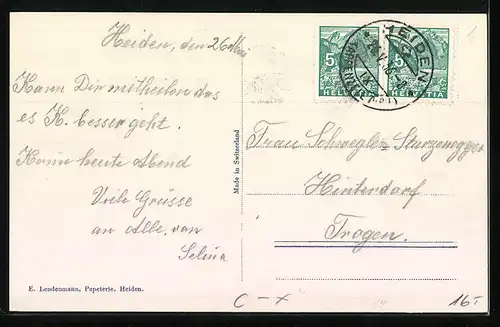 Heiden, den 26 Mai
Kann Dir mitheilen das
es K. besser geht.
Komme heute Abend
Viele Grüsse
an Alle, von
Selina
E. Lendenmann, Papeterie, Heiden.
Made in Switzerland
5
HELVETIA
5
HELVETIA
HEIDEN
Frau Schwegler Sturzenegger
Hinterdorf
Trogen.
C - x
16.-